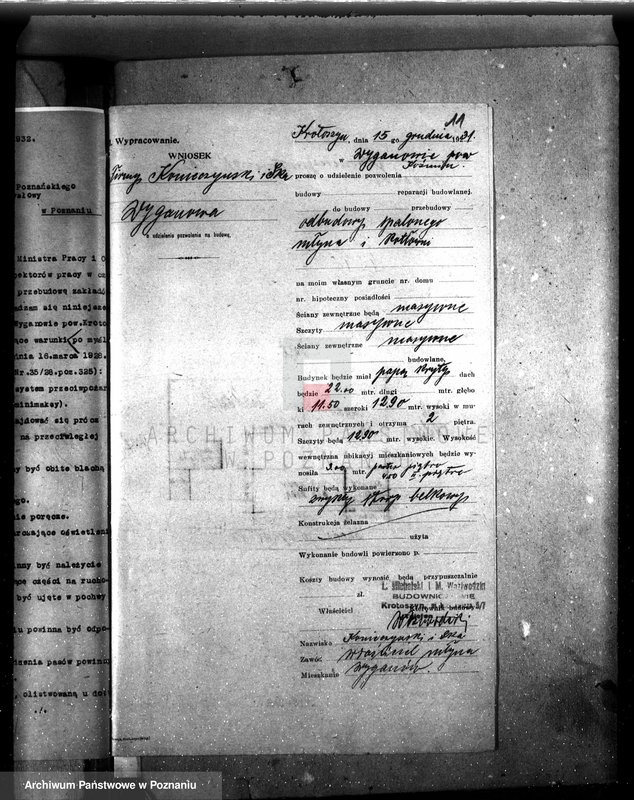 1932.
Poznańskiego
w Poznaniu
Ministra Pracy i O
pektorów pracy w
przebudowę zakład
adzam się niniejsze
Wyganowie pow.Kroto
ące warunki po myśl
dnia 16.marca 1928.
Nr.35/28.poz.325):
system przeciwpożar
minimaksy).
ajdować się prócz
na przeciwległej
y być obite blachą
go.
ie poręcze.
arczające oświetleni
inny być należycie
ące części na rucho-
być ujęte w pochwy
iu powinna być odpo-
zenia pasów powinn
, olistwowaną u doł
./.
11
Wypracowanie.
WNIOSEK
Firmy Konieczyński i Ska
Wyganowa
o udzielenie pozwolenia na budowę.
Krotoszyn, dnia 15 go grudnia 1931.
w Wyganowie pow
proszę o udzielenie pozwolenia
budowy reparacji budowlanej.
do budowy przebudowy
odbudowy spalonego
młyna i kotłowni
na moim własnym gruncie nr. domu
nr. hipoteczny posiadłości
Ściany zewnętrzne będą masywne
Szczyty masywne
Ściany zewnętrzne masywne
budowlane,
Budynek będzie miał papą kryty dach
będzie 22.00 mtr. długi mtr. głębo
ki 11.50 szeroki 12.90 mtr. wysoki w mu
rach zewnętrznych i otrzyma 2 piętra.
Szczyty będą 12.90 mtr. wysokie. Wysokość
wewnętrzna ubikacyj mieszkaniowych będzie wy-
nosiła 3.00 mtr. parter piętro
4.00 II piętro
Sufity będą wykonane
zwykły strop belkowy
Konstrukcja żelazna
użyta
Wykonanie budowli powierzono p.
Koszty budowy wynosić będą przypuszczalnie
zł.
L. Michalski i M. Wojwodzki
BUDOWNICZOWIE
Krotoszyn,
Właściciel Kierownik budowy
Nazwisko Konieczyński i Ska
Zawód właściciel młyna
Mieszkanie Wyganów.
ARCHIWUM PAŃSTWOWE
W POZNANIU
Archiwum Państwowe w Poznaniu